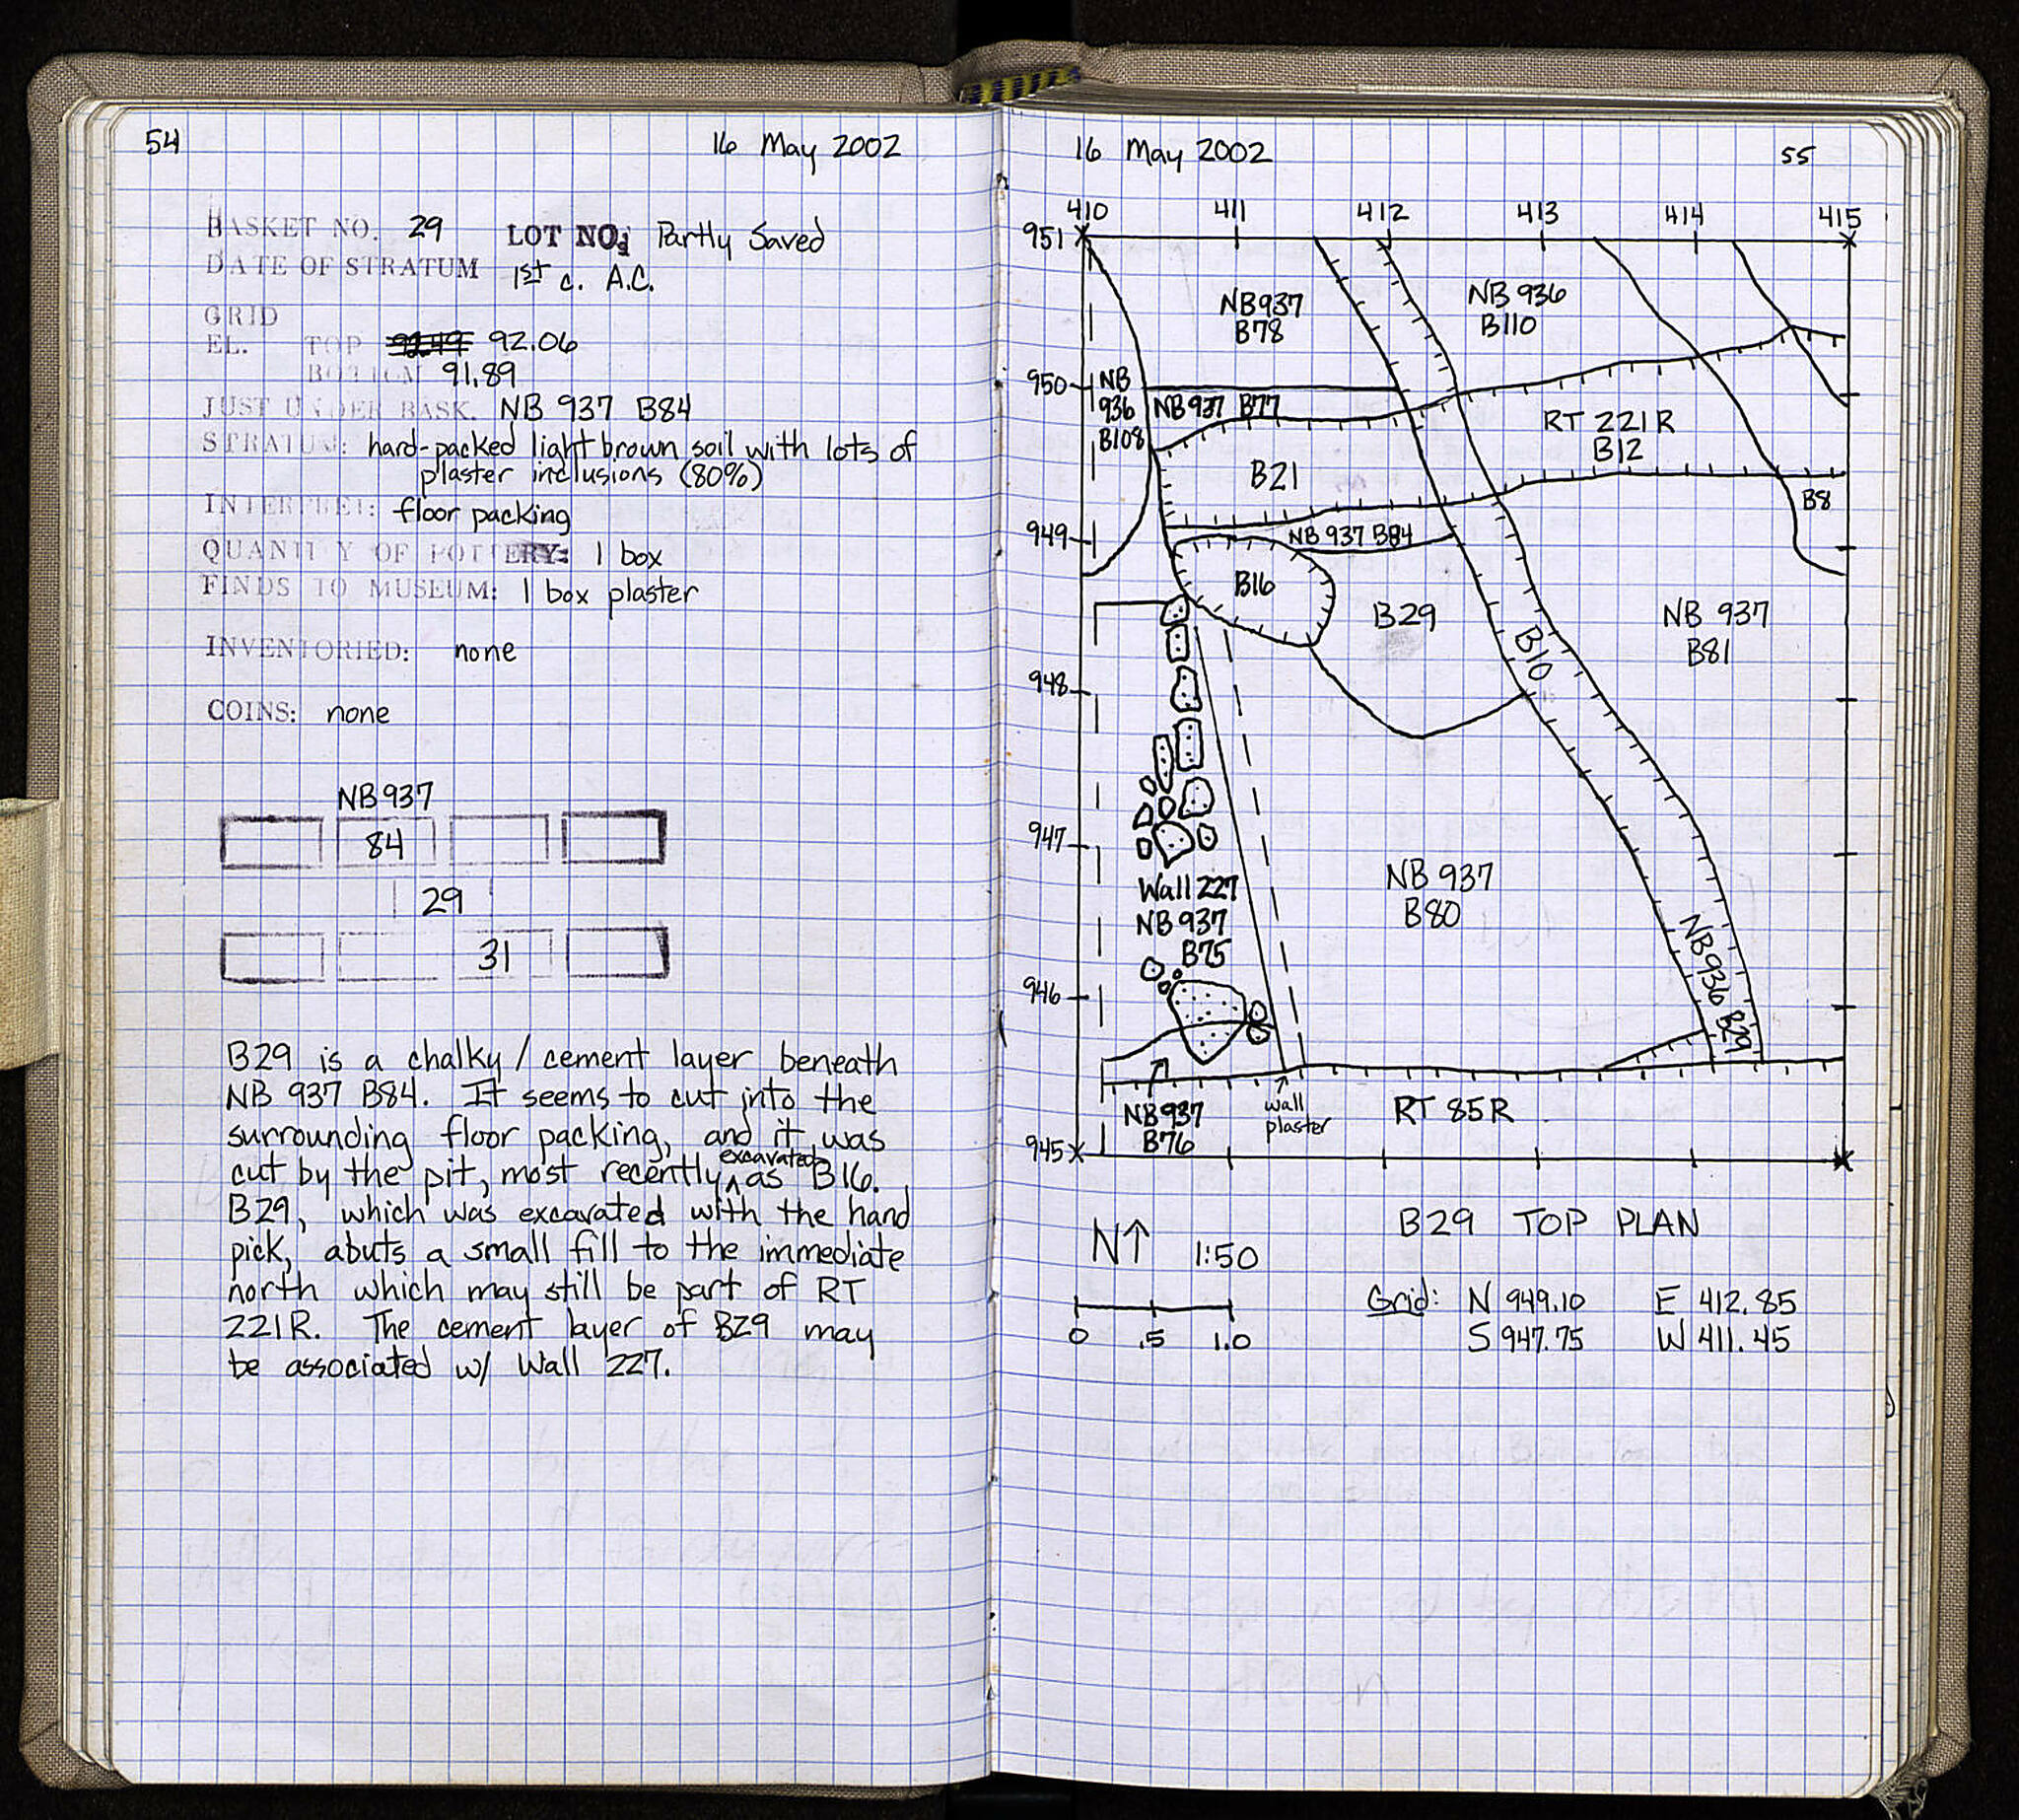 54
16 May 2002
BASKET NO. 29 LOT NO. Partly Saved
DATE OF STRATUM 1st c. A.C.
GRID
EL. TOP 92.06
BOTTOM 91.89
JUST UNDER BASK. NB 937 B84
STRATUM: hard-packed light brown soil with lots of
plaster inclusions (80%)
INTERPRET: floor packing
QUANTITY OF POTTERY: 1 box
FINDS TO MUSEUM: 1 box plaster
INVENTORIED: none
COINS: none
NB 937
84
29
31
B29 is a chalky/cement layer beneath
NB 937 B84. It seems to cut into the
surrounding floor packing, and it was
cut by the pit, most recently ^excavated as B16.
B29, which was excavated with the hand
pick, abuts a small fill to the immediate
north which may still be part of RT
221R. The cement layer of B29 may
be associated w/ Wall 227.
16 May 2002
55
410 411 412 413 414 415
951
NB 937
B78
NB 936
B110
950
NB
936
B108
NB 937 B77
RT 221R
B12
B21
B8
949
NB 937 B84
B16
B29
B10
NB 937
B81
948
947
Wall 227
NB 937
B75
NB 937
B80
NB 936 B29
946
NB 937
B76
wall
plaster
RT 85R
945
N↑ 1:50
B29 TOP PLAN
0 .5 1.0
Grid: N 949.10 E 412.85
S 947.75 W 411.45